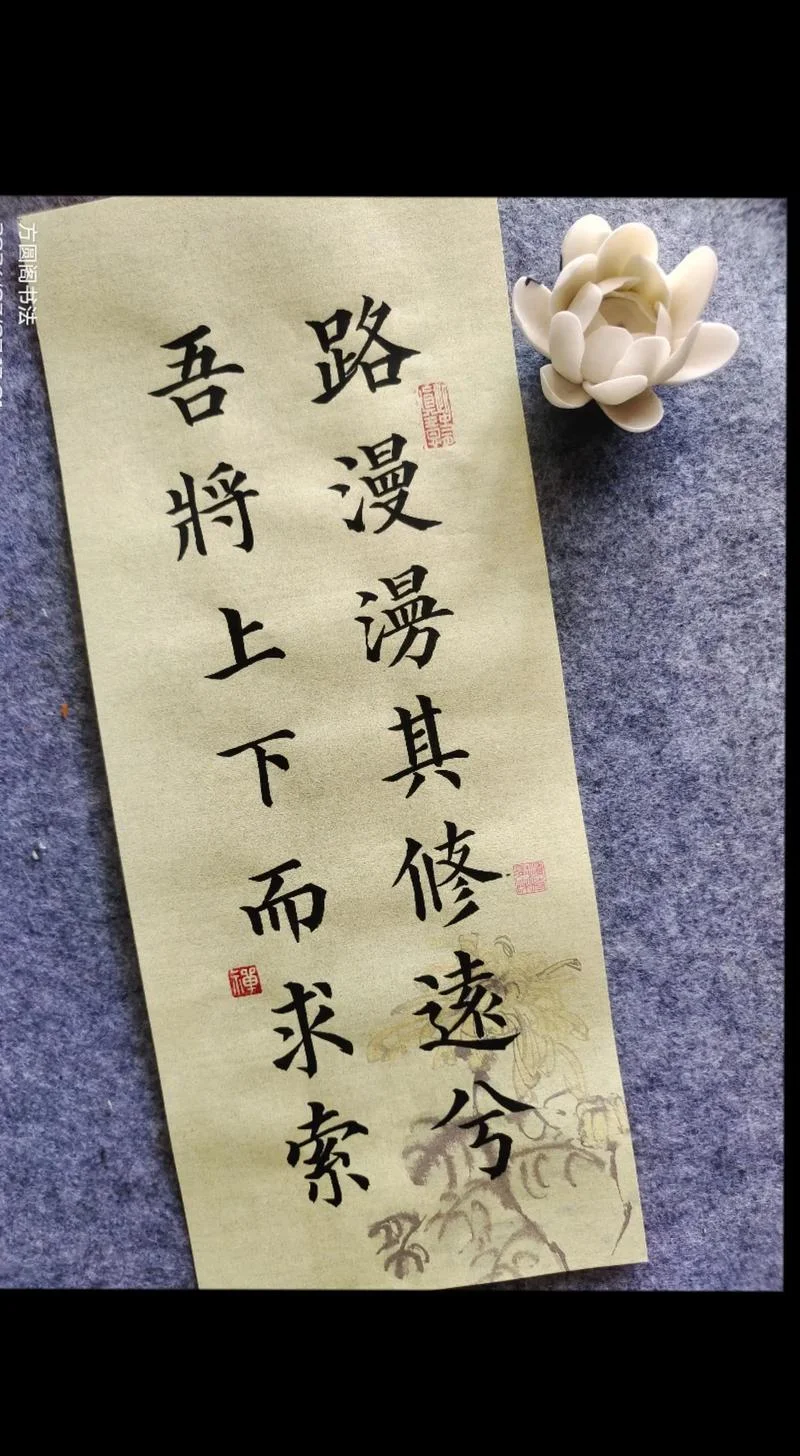 路漫漫其修遠兮
吾將上下而求索
禪
方圆阁书法